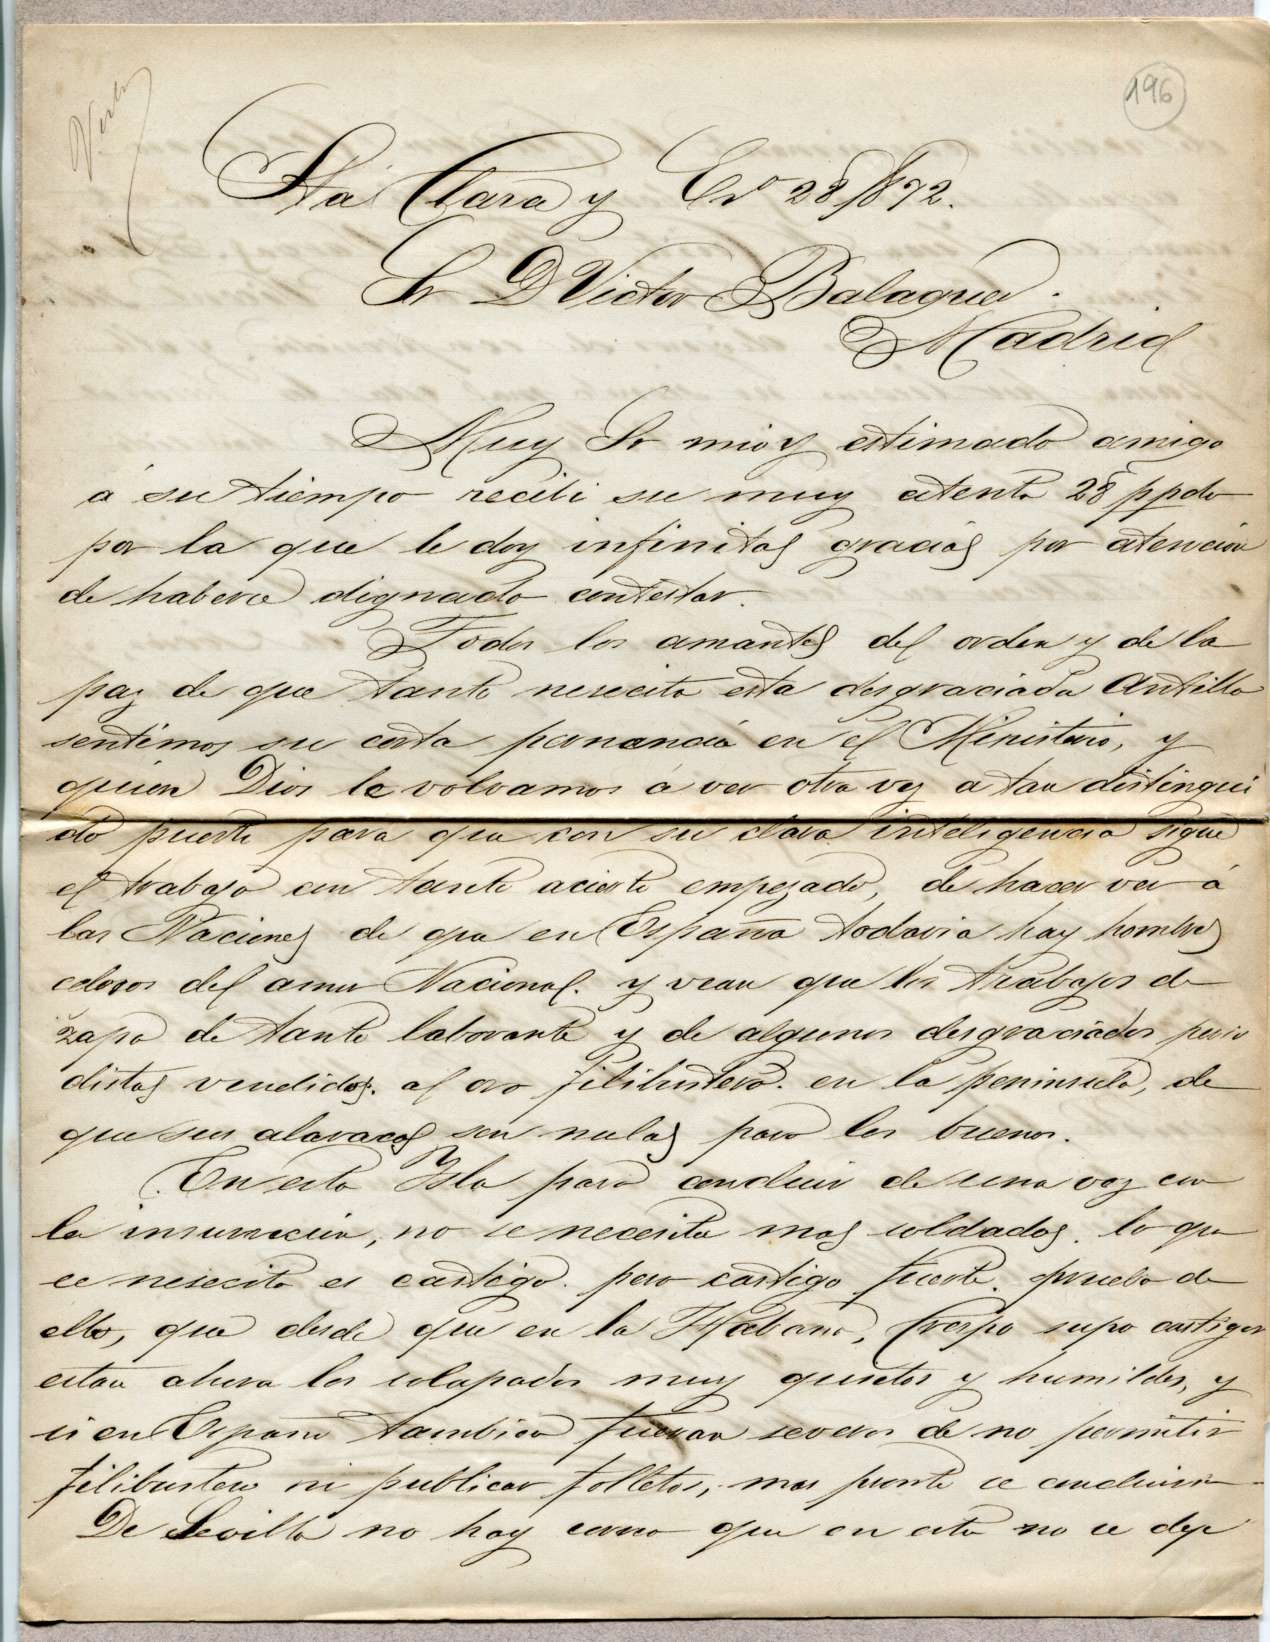 196
Sta Clara y En.o 28/872.
Sr D Victor Balaguer.
Madrid
Muy Sr mio y estimado amigo
á su tiempo recibi su muy atenta 28 ppdo
por la que le doy infinitas gracias por atencion
de haberse dignado contestar.
Todos los amantes del orden y de la
paz de que tanto nesecita esta desgraciada Antilla
sentimos su corta permanencia en el Ministerio, y
quiera Dios le volvamos á ver otra vez a tan distingui
do puesto para que con su clara inteligencia sigue
el trabajo con tanto acierto empezado, de hacer ver á
las Naciones de que en España todavia hay hombres
celosos del amor Nacional. y vean que los trabajos de
zapa de tanto laborante y de algunos desgraciados perio
distas vendidos. al oro filibustero. en la peninsula, de
que sus alaracas son nulas para los buenos.
En esta Isla para concluir de una vez con
la insurreccion, no se necesita mas soldados. lo que
se nesecita es castigo. pero castigo fuerte. prueba de
ello, que desde que en la Habana, Crespo supo castigar
estan ahora los solapados muy quietos y humildes, y
si en España tambien fueran severos de no permitir
filibustero ni publicar folletos, mas pronto se concluiria
De Sevilla no hay correo que en esta no se deje